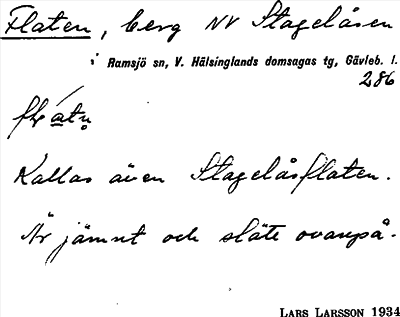 Flaten, berg NV Stagelåsen
i Ramsjö sn, V. Hälsinglands domsagas tg, Gävleb. l.
286
Kallas även Stagelåsflaten.
Är jämnt och släte ovanpå.
LARS LARSSON 1934